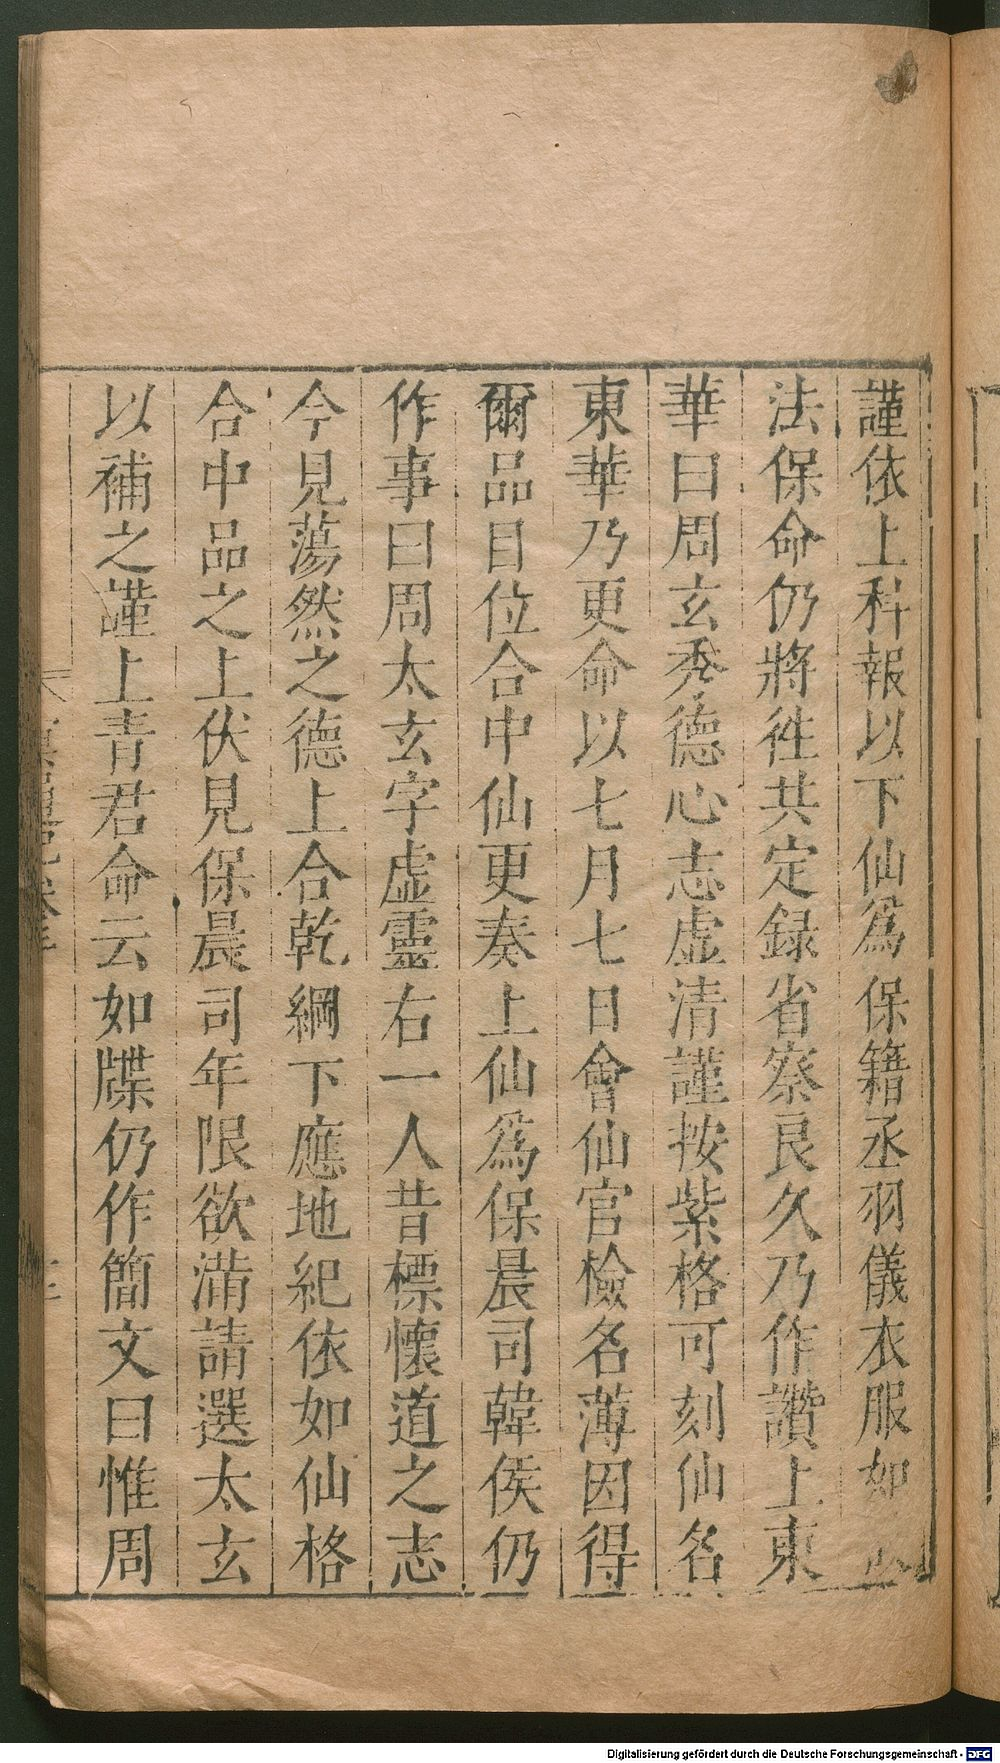 謹依上科報以下仙爲保籍丞羽儀衣服如
法保命仍將徃共定録省察良久乃作讚上東
華曰周玄秀德心志虛清謹按紫格可刻仙名
東華乃更命以七月七日會仙官檢名薄因得
爾品目位合中仙更奏上仙爲保晨司韓侯仍
作事曰周太玄字虛靈右一人昔標懷道之志
今見蕩然之德上合乾綱下應地紀依如仙格
合中品之上伏見保晨司年限欲滿請選太玄
以補之謹上青君命云如牒仍作簡文曰惟周
Digitalisierung gefördert durch die Deutsche Forschungsgemeinschaft - DFG